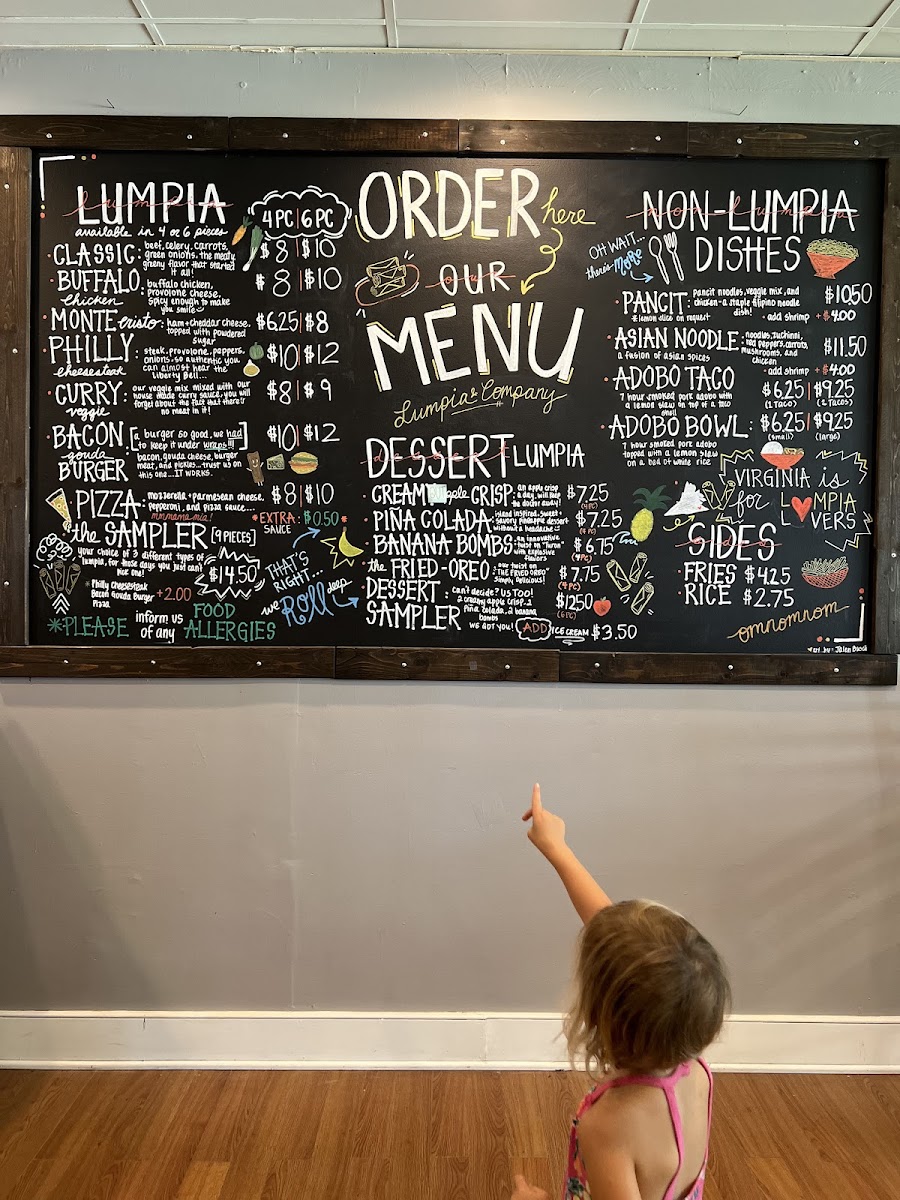 LUMPIA
available in 4 or 6 pieces
4 PC | 6 PC
CLASSIC: beef, celery, carrots,
green onions. the meaty,
greeny flavor that started
it all!
$8 | $10
BUFFALO: buffalo chicken,
chicken
provolone cheese.
spicy enough to make
you smile
$8 | $10
MONTE cristo: ham + cheddar cheese.
topped with powdered
sugar
$6.25 | $8
PHILLY: steak, provolone, peppers,
cheesesteak
onions. so authentic you
can almost hear the
Liberty Bell...
$10 | $12
CURRY: our veggie mix mixed with our
veggie
house made curry sauce. you will
forget about the fact that there's
no meat in it!
$8 | $9
BACON [a burger so good, we had]
gouda
to keep it under wraps!!!
BURGER
bacon, gouda cheese, burger
meat, and pickles... trust us on
this one... IT WORKS.
$10 | $12
PIZZA: mozzerella + parmesean cheese,
pepperoni, and pizza sauce...
mmmama mia!
$8 | $10
the SAMPLER [9 PIECES]
your choice of 3 different types of
lumpia, for those days you just can't
pick one!
$14.50
* Philly Cheesesteak
Bacon Gouda Burger +2.00
Pizza
*EXTRA: $0.50 *
SAUCE
THAT'S
RIGHT...
we ROLL deep
*PLEASE inform us of any FOOD ALLERGIES
ORDER here
OUR
MENU
Lumpia & Company
DESSERT LUMPIA
CREAMY apple CRISP: an apple crisp
a day, will keep
the doctor away!
$7.25
(4 PC)
PIÑA COLADA: island inspired, sweet +
savory pineapple dessert
without a headache
$7.25
(4 PC)
BANANA BOMBS: an innovative
twist on "Turon"
with explosive
flavors
$6.75
(4 PC)
the FRIED-OREO: our twist on
"THE FRIED OREO"
Simply delicious!
$7.75
(4 PC)
DESSERT
SAMPLER
can't decide? US TOO!
2 creamy apple crisp, 2
piña colada, 2 banana
bombs
WE GOT YOU!
$12.50
(6 PC)
ADD ICE CREAM $3.50
NON-LUMPIA
DISHES
OH WAIT...
there's MORE
PANCIT: pancit noodles, veggie mix, and
chicken - a staple filipino noodle
dish!
* lemon slice on request
$10.50
- add shrimp + $4.00
ASIAN NOODLE: noodles, zucchini,
red peppers, carrots,
mushrooms, and
chicken
a fusion of asian spices
$11.50
- add shrimp + $4.00
ADOBO TACO
7 hour smoked pork adobo with
a lemon slaw on top of a taco
shell
$6.25 | $9.25
(1 Taco) (2 Tacos)
ADOBO BOWL:
7 hour smoked pork adobo
topped with a lemon slaw
on a bed of white rice
$6.25 | $9.25
(small) (large)
VIRGINIA is
for L❤MPIA
LOVERS
SIDES
FRIES $4.25
RICE $2.75
omnomnom